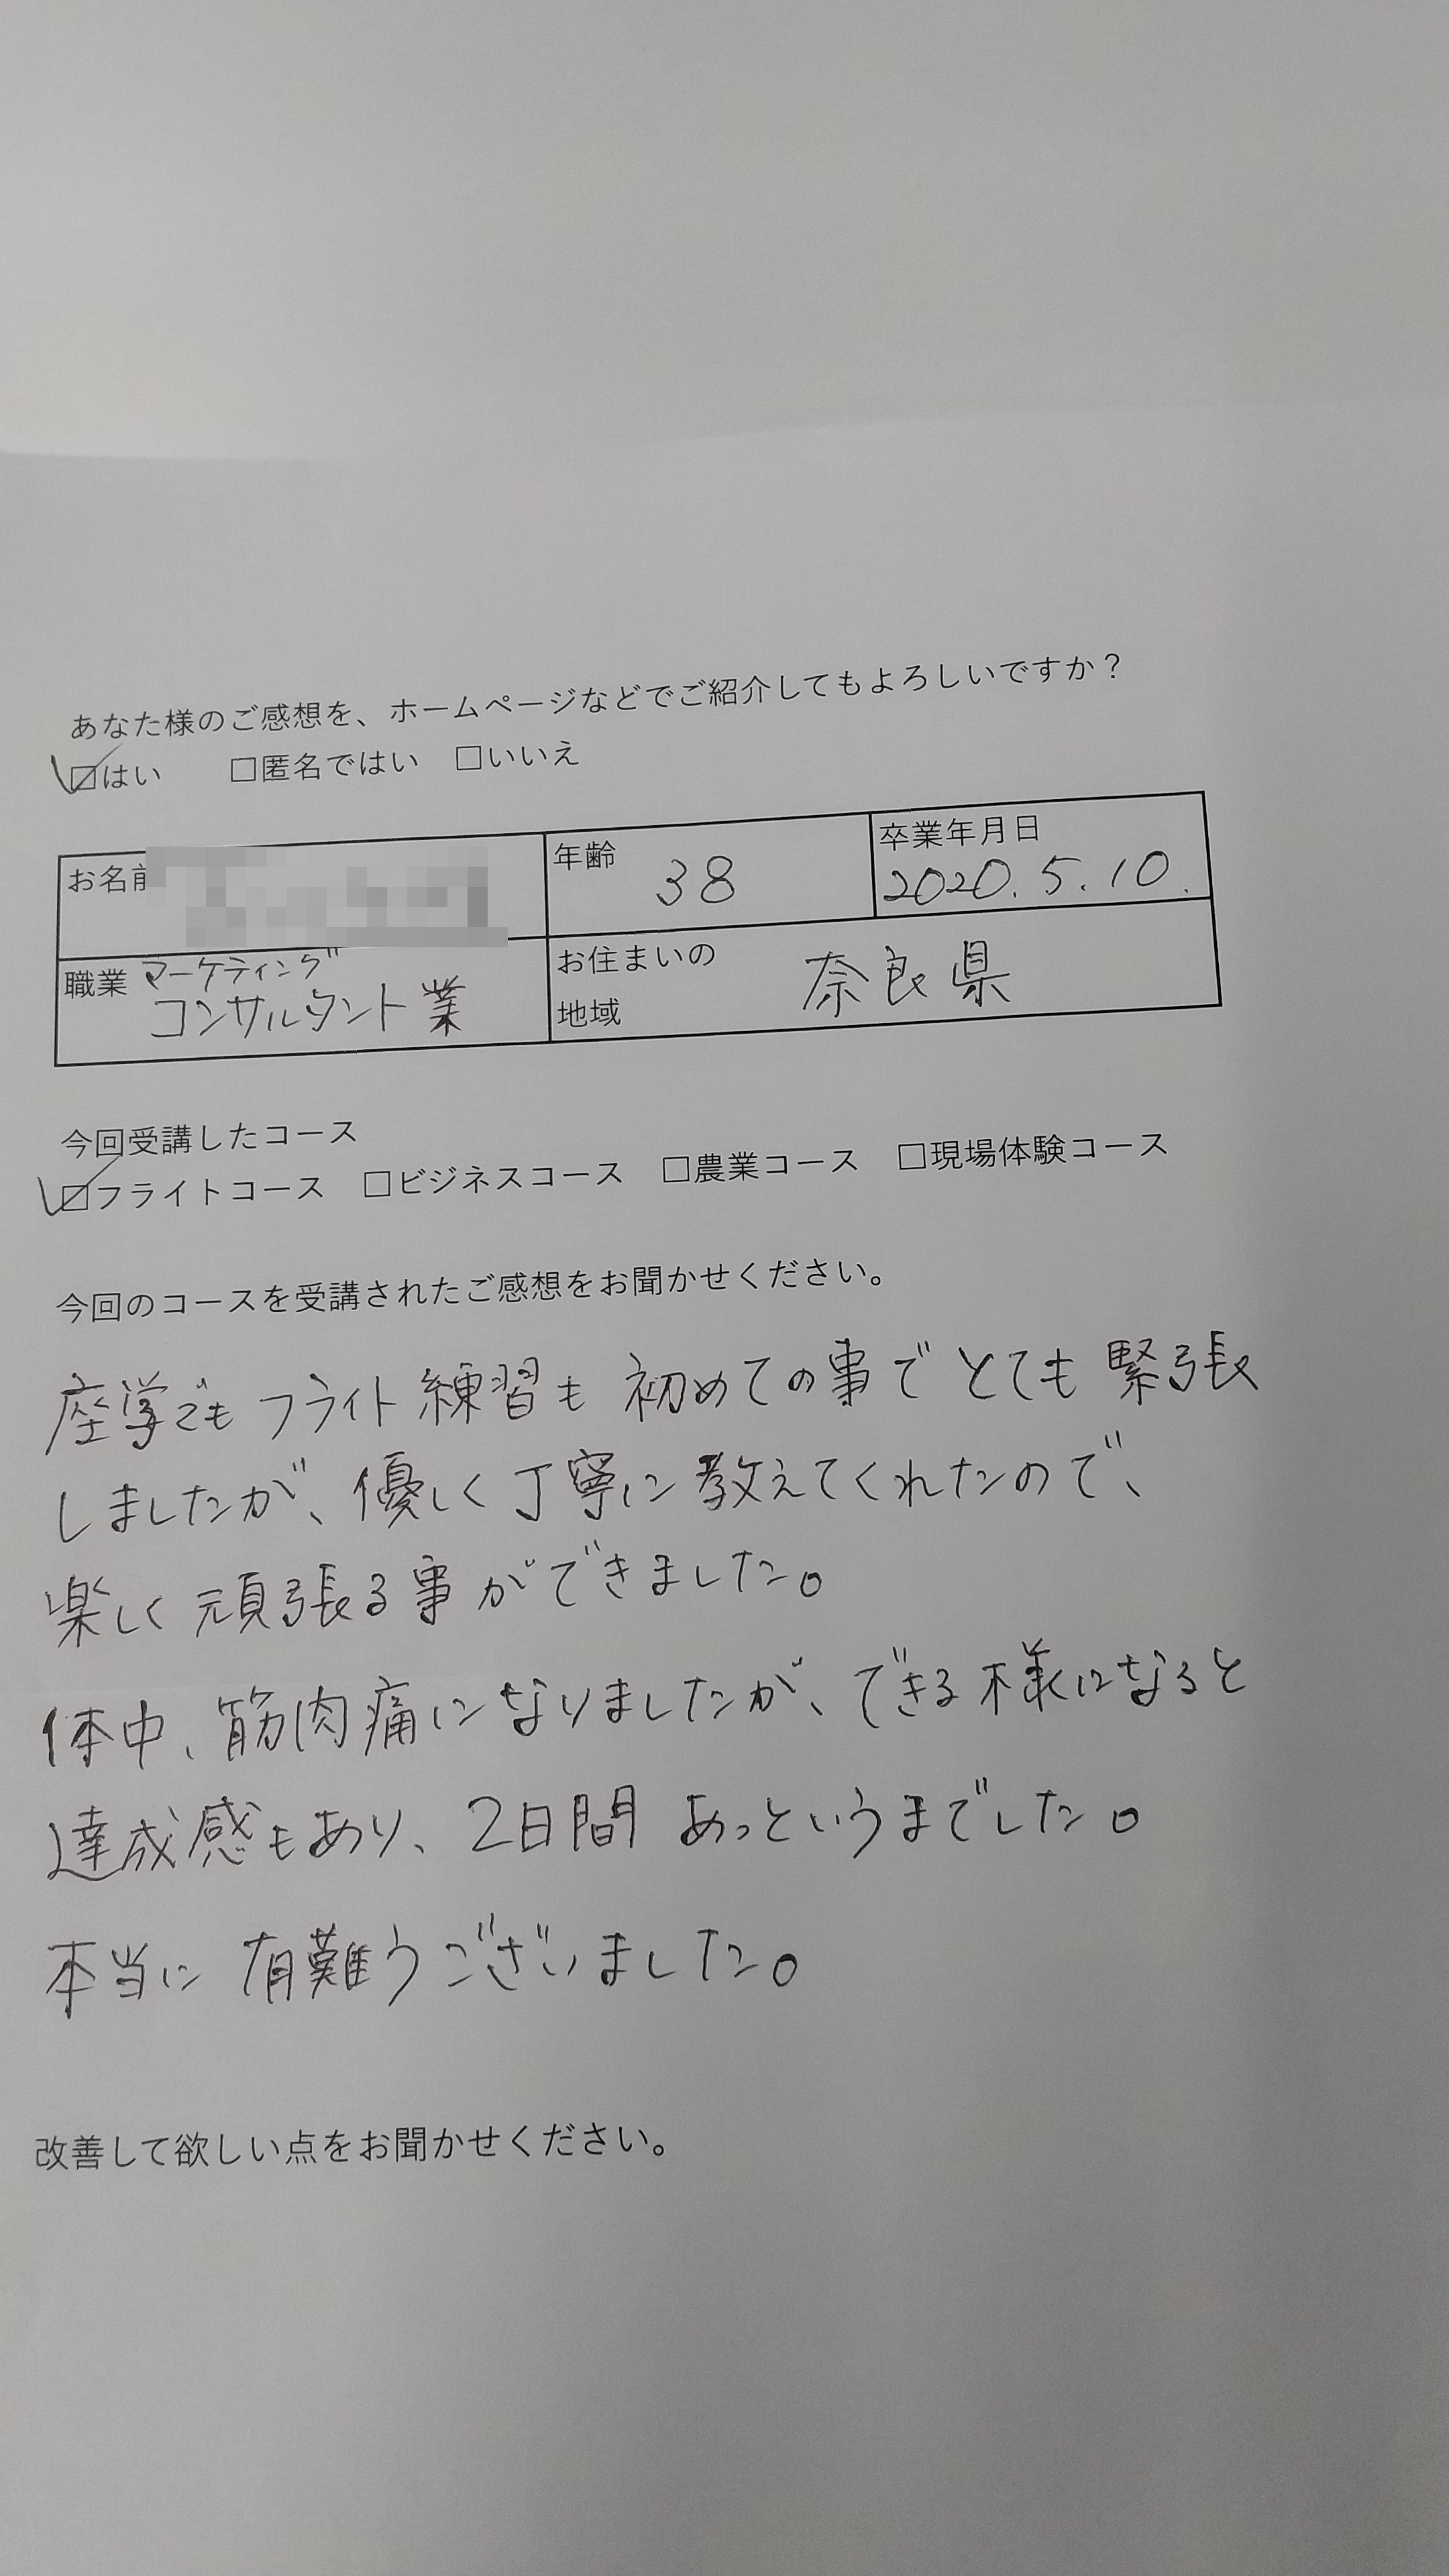 あなた様のご感想を、ホームページなどでご紹介してもよろしいですか？
☑はい　□匿名ではい　□いいえ
お名前
年齢 38
卒業年月日 2020.5.10.
職業 マーケティング
コンサルタント業
お住まいの
地域 奈良県
今回受講したコース
☑フライトコース　□ビジネスコース　□農業コース　□現場体験コース
今回のコースを受講されたご感想をお聞かせください。
座学でもフライト練習も初めての事でとても緊張
しましたが、優しく丁寧に教えてくれたので、
楽しく頑張る事ができました。
体中、筋肉痛になりましたが、できる様になると
達成感もあり、2日間あっというまでした。
本当に有難うございました。
改善して欲しい点をお聞かせください。